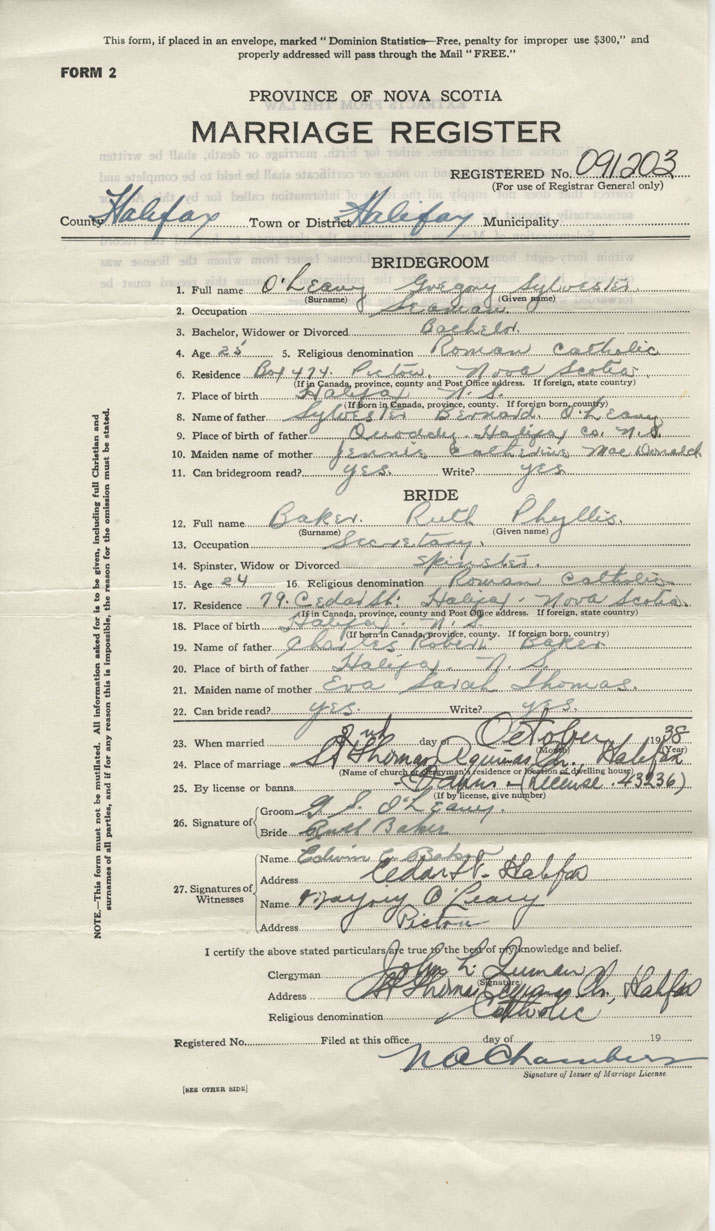 This form, if placed in an envelope, marked "Dominion Statistics—Free, penalty for improper use $300," and
properly addressed will pass through the Mail "FREE."
FORM 2
PROVINCE OF NOVA SCOTIA
MARRIAGE REGISTER
REGISTERED No. 091203
(For use of Registrar General only)
County Halifax Town or District Halifax Municipality
BRIDEGROOM
1. Full name O'Leary Gregory Sylvester
(Surname) (Given name)
2. Occupation Seaman
3. Bachelor, Widower or Divorced Bachelor.
4. Age 25 5. Religious denomination Roman Catholic
6. Residence Box 474. Pictou, Nova Scotia
(If in Canada, province, county and Post Office address. If foreign, state country)
7. Place of birth Halifax N.S.
(If born in Canada, province, county. If foreign born, country)
8. Name of father Sylvester Bernard O'Leary
9. Place of birth of father Quoddy Halifax Co. N.S.
10. Maiden name of mother Jennie Catherine MacDonald
11. Can bridegroom read? yes. Write? yes
BRIDE
12. Full name Baker. Ruth Phyllis.
(Surname) (Given name)
13. Occupation Secretary.
14. Spinster, Widow or Divorced Spinster.
15. Age 24 16. Religious denomination Roman Catholic
17. Residence 79. Cedar St. Halifax. Nova Scotia.
(If in Canada, province, county and Post Office address. If foreign, state country)
18. Place of birth Halifax. N.S.
(If born in Canada, province, county. If foreign born, country)
19. Name of father Charles Robert Baker
20. Place of birth of father Halifax. N.S.
21. Maiden name of mother Eva Sarah Thomas.
22. Can bride read? yes. Write? yes.
23. When married 3rd day of October 1938
(Month) (Year)
24. Place of marriage St Thomas Aquinas Ch., Halifax
(Name of church or clergyman's residence or location of dwelling house)
25. By license or banns Banns - (License. 43236)
(If by license, give number)
26. Signature of
Groom G. S. O'Leary.
Bride Ruth Baker
27. Signatures of Witnesses
Name Edwin C Baker
Address Cedar St. Halifax
Name Marjory O'Leary
Address Pictou
I certify the above stated particulars are true to the best of my knowledge and belief.
Clergyman John L. Quinan
(Signature)
Address St Thomas Aquinas Ch., Halifax
Religious denomination Catholic
Registered No. Filed at this office day of 19
N A Chambers
Signature of Issuer of Marriage License.
[SEE OTHER SIDE]
NOTE.—This form must not be mutilated. All information asked for is to be given, including full Christian and
surnames of all parties, and if for any reason this is impossible, the reason for the omission must be stated.